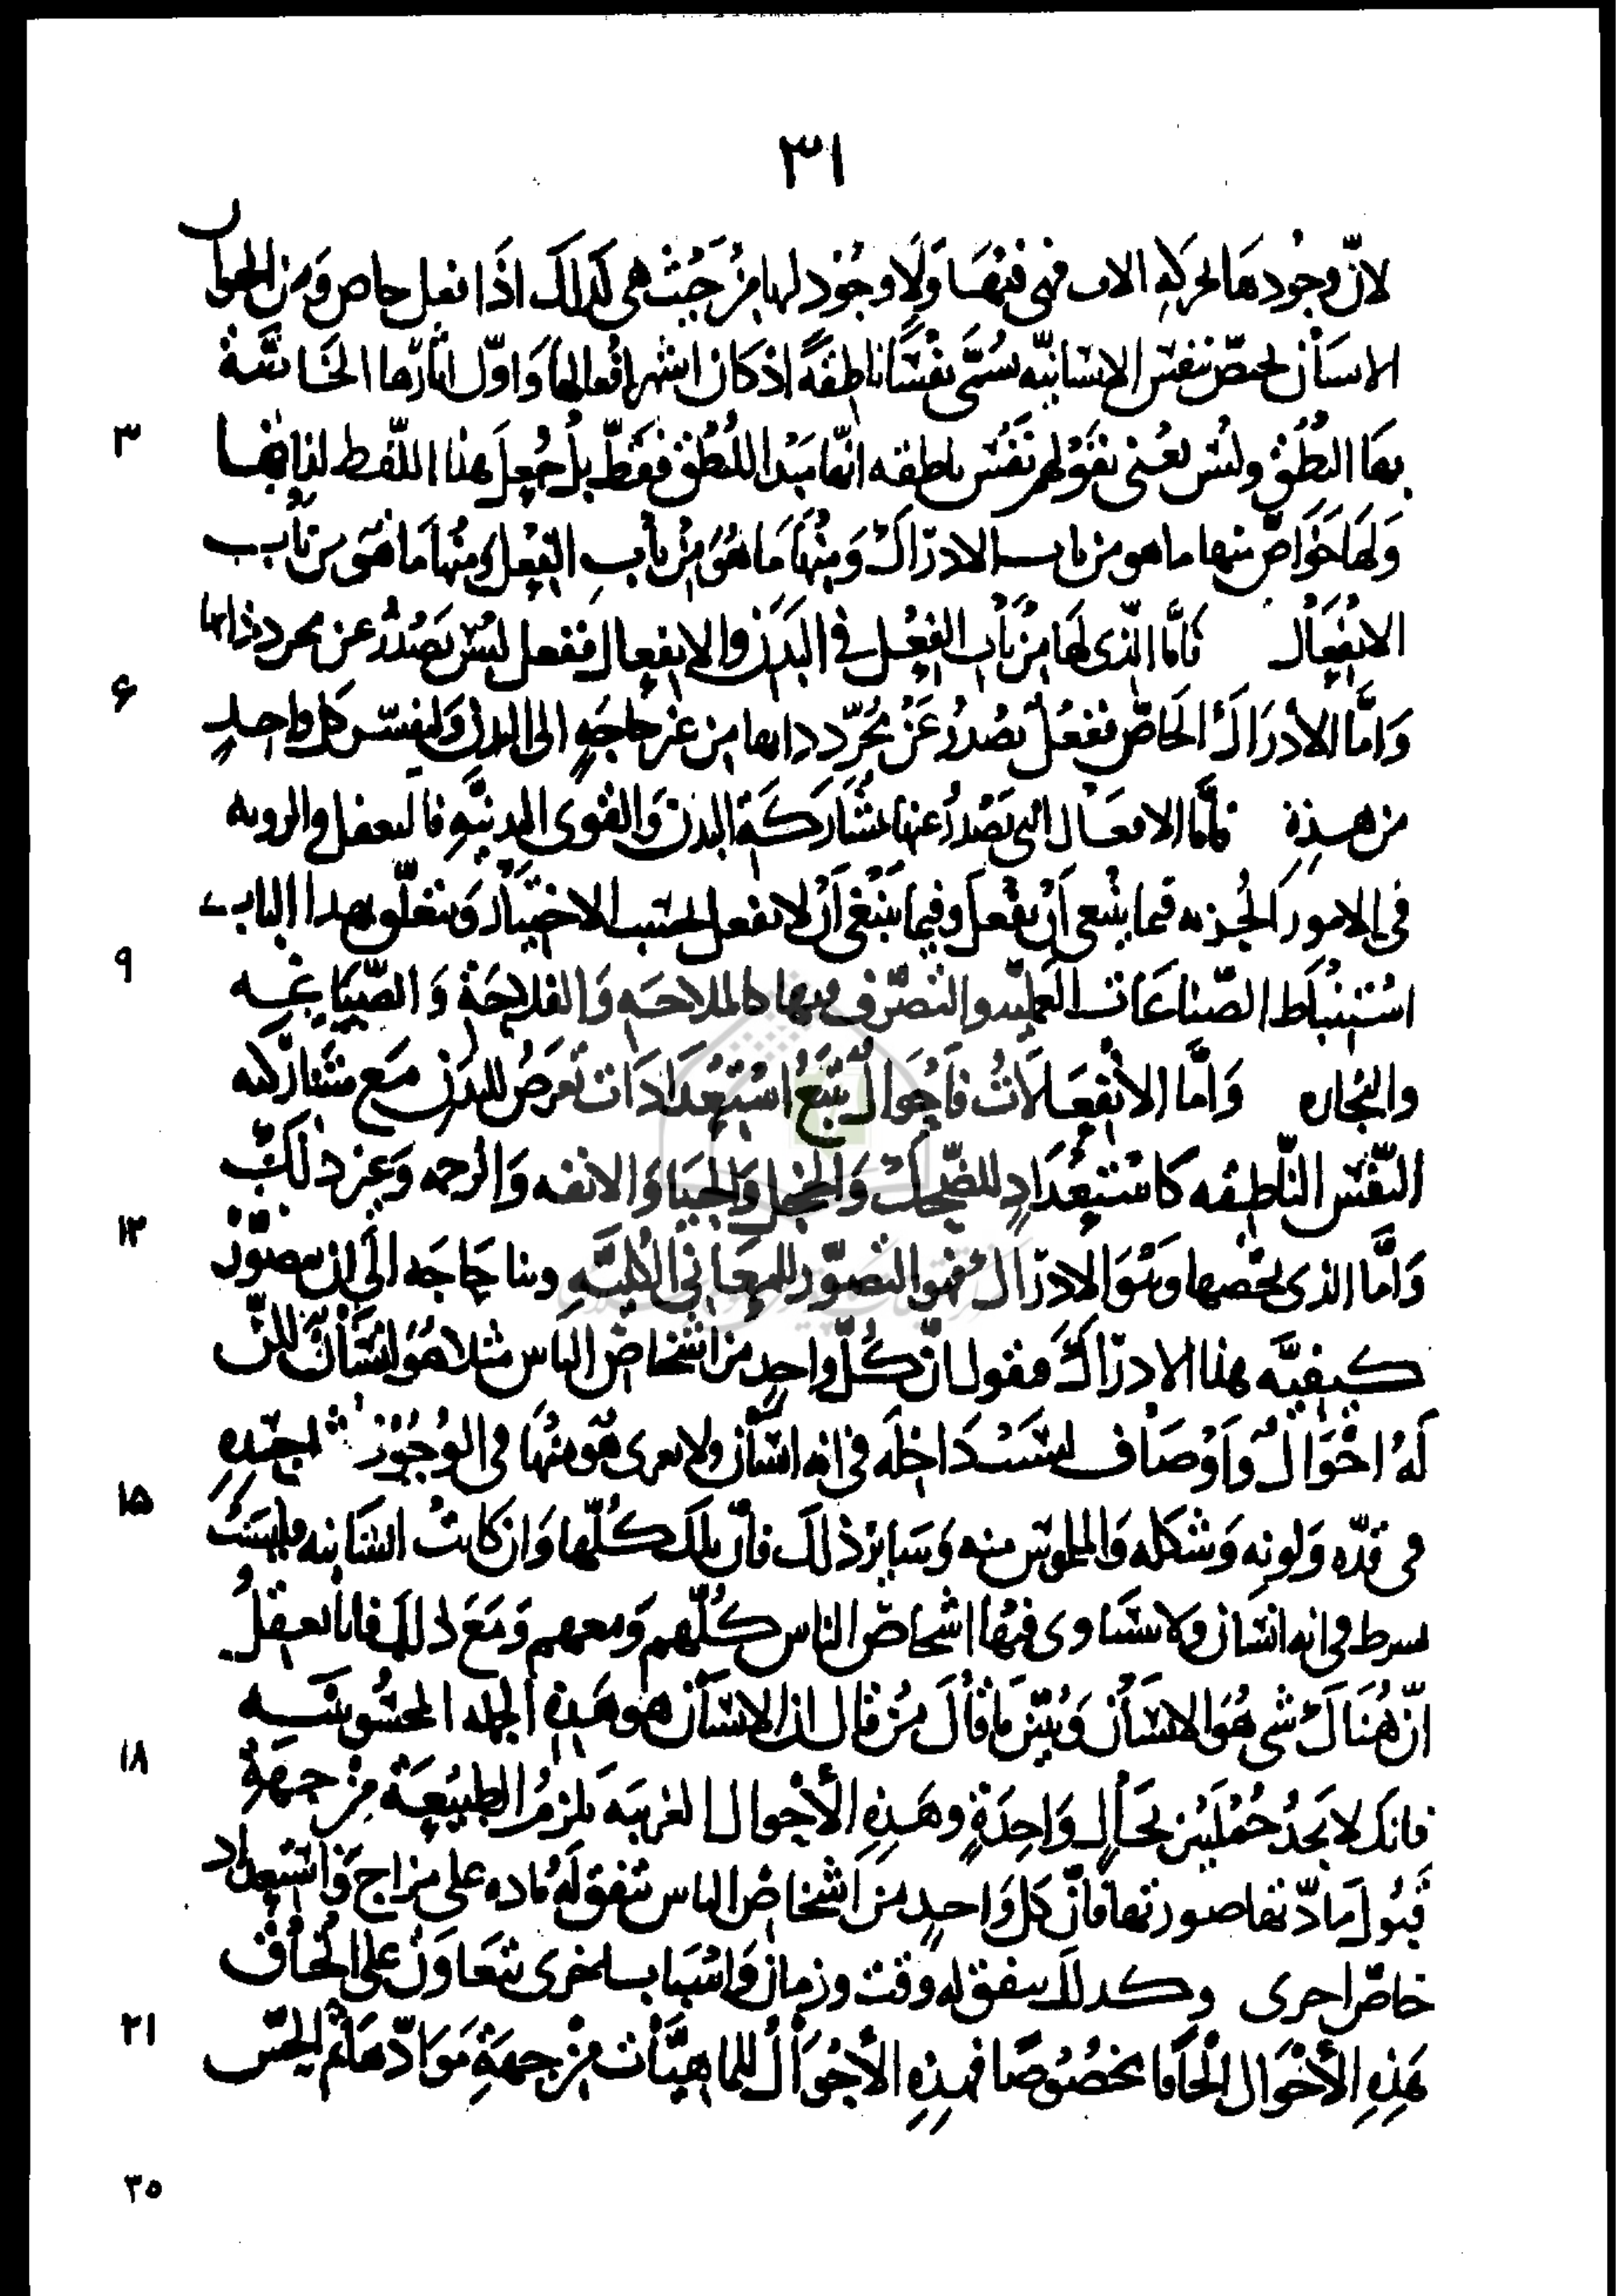 ٣١
لانّ وجُودهَا لحركهِ الات فهى فيهَا وَلَا وجُود لها مِنْ حَيْث هى كذلك اذَا فعل خاص وَمن الحيوان
الانسَان يختصّ بنفس الانسَانيّه تسُمَّى نفسًا ناطقةً اذ كان اشهر افعالهَا وَاوّل اثارهَا الخَاصَّة
٣ بهَا النُطْق وليْس يعْنى بقَوْلهم نَفْس ناطقه انّهَا مَبْدا للنُطْق فقطّ بلْ جُعِلَ هذا اللّفظ لذاتهَا
وَلهَا خَوَاصّ منها ما هو من باب الادرَاك وَمنْهَا مَا هوَ مِنْ بَاب الفِعْل وَمنْهَا مَا هوَ من بَاب
الانفِعَال فَامَّا الّذى لهَا مِنْ بَاب الفِعْل فى البَدَن والانفِعال ففعل ليْس يَصْدُرُ عن مجرد ذاتها
۶ وَامَّا الادرَاك الخَاصّ ففعْلٌ يَصْدُرُ عَنْ مُجَرّد ذاتها من غير حَاجَهٍ الى البدن وَلنفسّر كل واحدٍ
من هذِهِ فَامَّا الافعَال التى تَصْدُرُ عنها بمشَارَكَة البدن وَالقوى البدنيَّهِ فالتعقل والرويه
فى الامور الجُزيه فيما ينْبغى أنْ يفْعل وفيما ينْبَغى أنْ لا يفعل بحَسب الاختِيَار وَيتعلّق بهذا الباب
٩ اسْتِنْبَاط الصّنَاعَات العمليّه والتصرّف فيها كالملاحه وَالفلاحَة وَ الصّيَاغه
والنجاره وَامَّا الانفِعَالَاتُ فَاحْوَالٌ تتْبَعُ اسْتِعْدَادَات تَعْرضُ للبدَن مَع مشَاركه
النّفْس النّاطقه كاسْتِعْدَادٍ للضّحِك وَالخجل وَالحيَا وَالانفه وَالرحمه وَغير ذلكَ
١٢ وَامَّا الذى يخصّها وَهْوَ الادرَاك فهو التصوّر للمعَانى الكُليَّهِ وبنا حَاجَه الَى ان نتصوَّر
كيفيَّه هذا الادرَاك فنقول انّ كُلّ واحِدٍ من اشخاص الناس مثلا هُوَ انسَان لكن
لَهُ احْوَالٌ وَاوْصَاف ليْسَت دَاخِلَه فى انه انسَان ولا يعرى هو منْهَا فى الوُجُوْد مثل حَدّهِ
١۵ فى قدّه وَلونِه وَشكله وَالملموس منه وَسَاير ذلك فانّ تلك كُلّها وَان كانتْ انسَانيه فليْسَتْ
بشرط فى انه انسَان وَلا يتسَاوى فيْهَا اشخاصّ الناس كُلّهم وَمعهم وَمَعَ ذلك فانا نعْقِلُ
انّ هُنَاكَ شى هُوَ الانسَان وَبيْسَ مَا قَالَ مَنْ قال ان الانسَان هو هَذِهِ الجمله المحسُوسَه
١٨ فانك لا تجدُ جُمْلَتَيْن بحَالٍ وَاحِدَةٍ وهَذِهِ الأحْوال الغريبَه تلزمُ الطبيْعَة مِن جِهَةِ
قَبُول مَادّتهَا صورتهَا فانّ كل وَاحِدٍ من اشخاص الناس تتفق لهُ مَاده على مزاج وَاسْتِعداد
خاصّ احرى وكذلك يتفق له وقت وزمان وَاسْبَاب اخرى تتعَاوَنُ على الحَاق
٢١ هذِهِ الأحْوَال الحَاقا بخصُوصًا فهذِهِ الأحْوَالُ للماهيَّات مِن جِهَةِ مَوَادّهَا ثم الحِسّ
٣٥